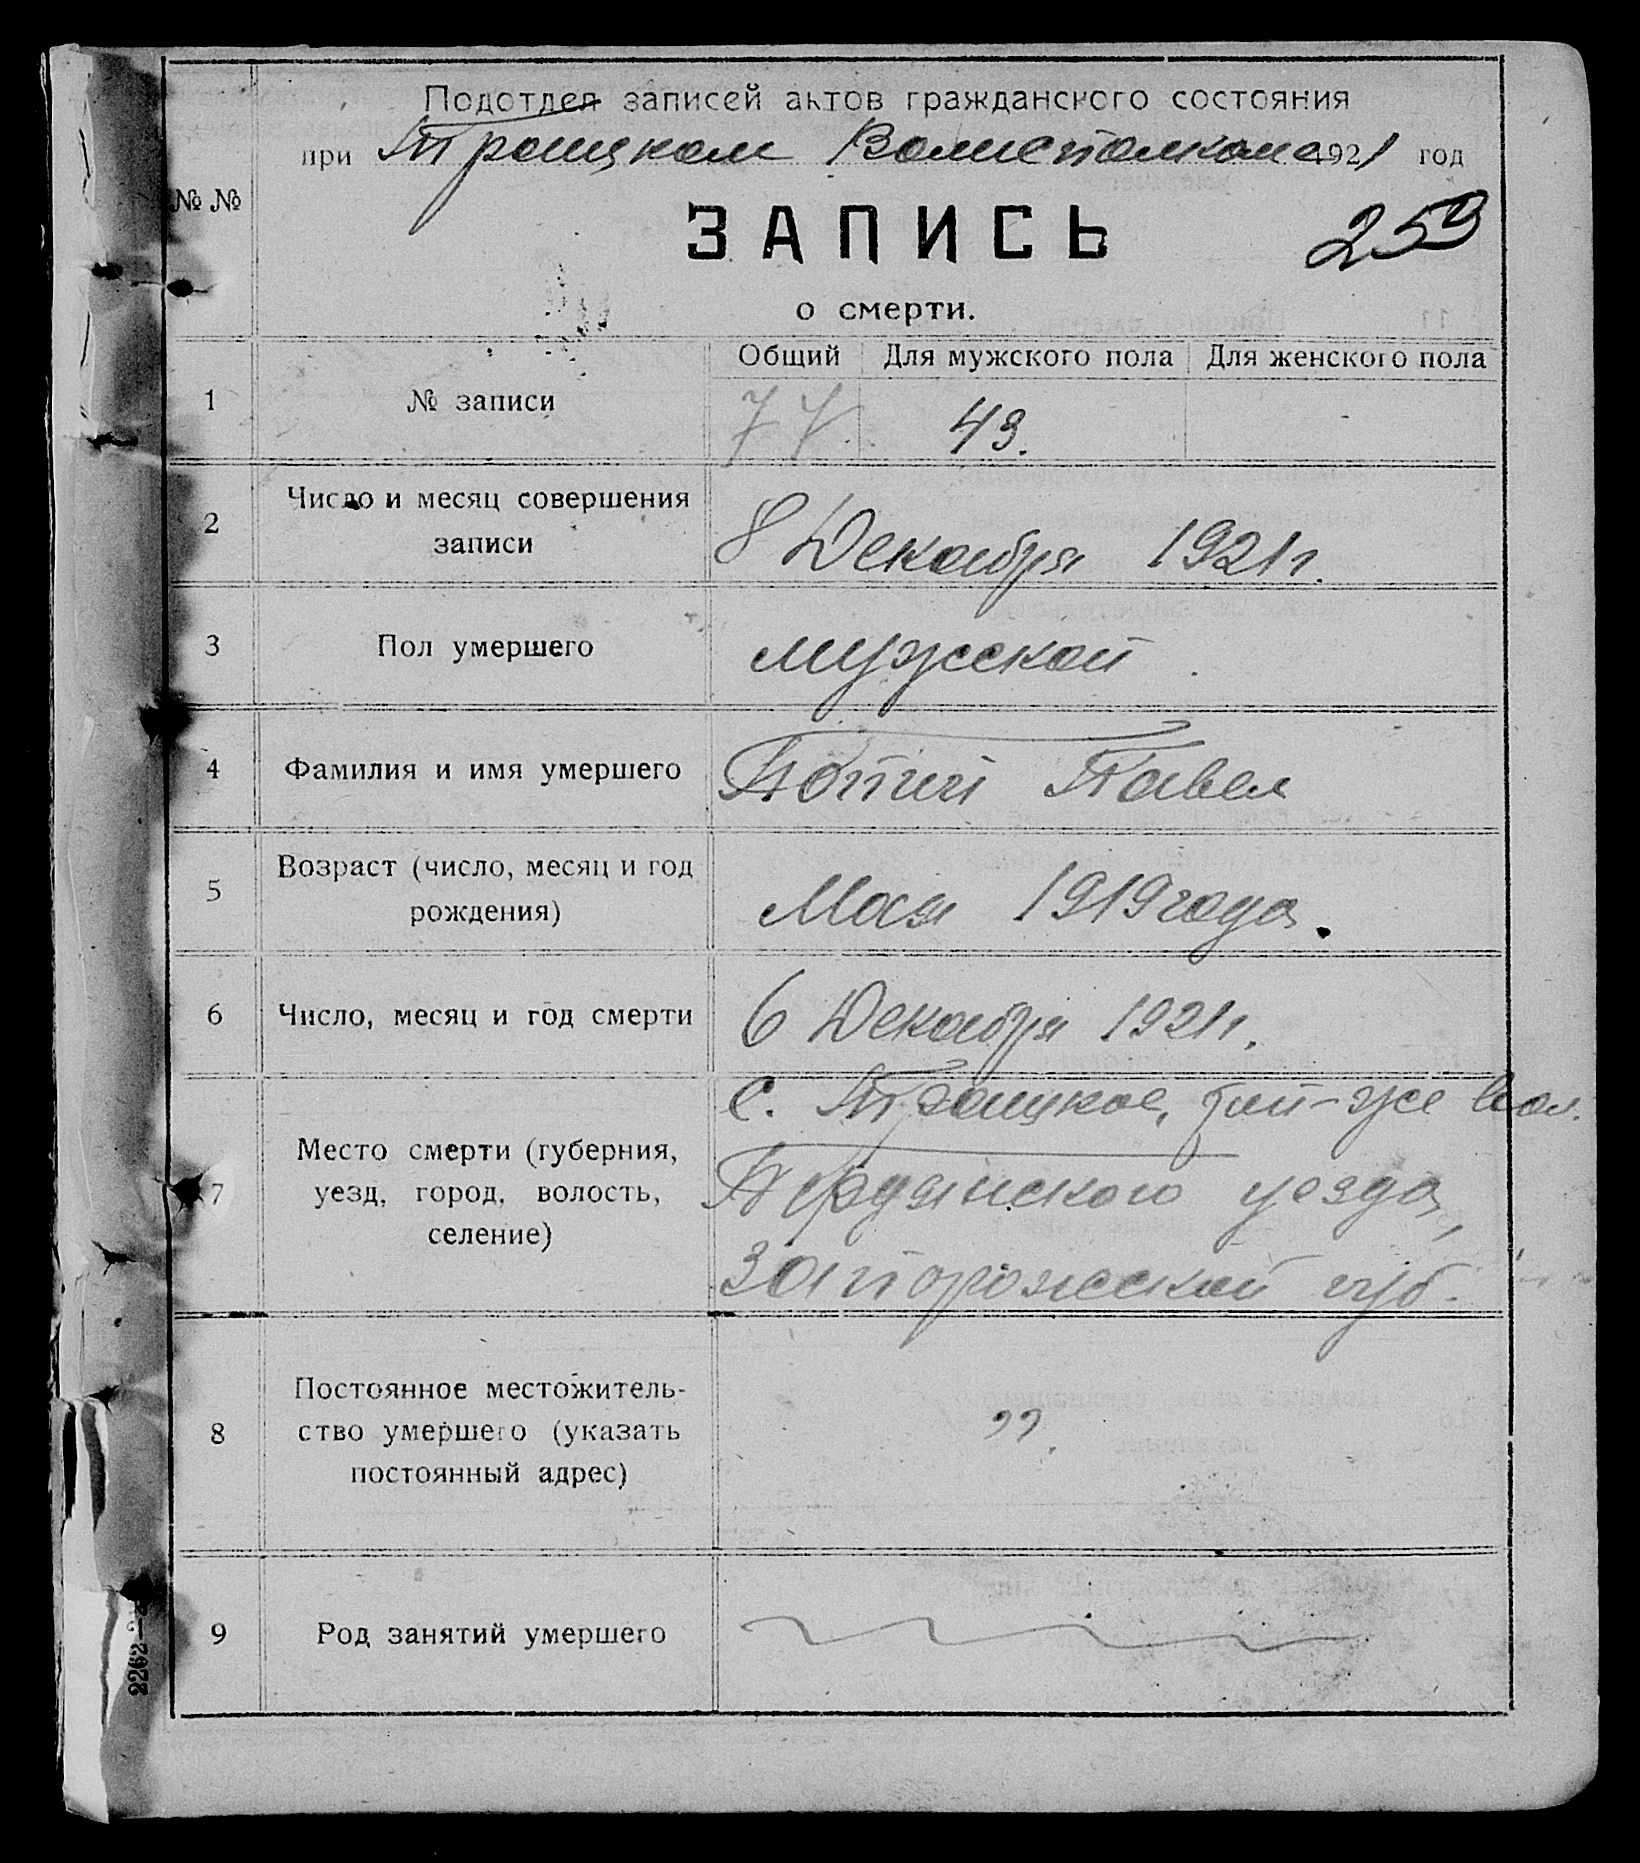 Подотдел записей актов гражданского состояния
при Троицком Волисполкоме 1921 год
№ №
ЗАПИСЬ
259
о смерти.
Общий Для мужского пола Для женского пола
1 № записи 77 43. -
2 Число и месяц совершения
записи
8 Декабря 1921 г.
3 Пол умершего мужской
4 Фамилия и имя умершего Павел
5 Возраст (число, месяц и год
рождения)
Мая 1919 года.
6 Число, месяц и год смерти 6 Декабря 1921 г.
7 Место смерти (губерния,
уезд, город, волость,
селение)
с. Троицкое, той-же вол.
уезда,
Запорожской губ.
8 Постоянное местожитель-
ство умершего (указать
постоянный адрес)
".
9 Род занятий умершего